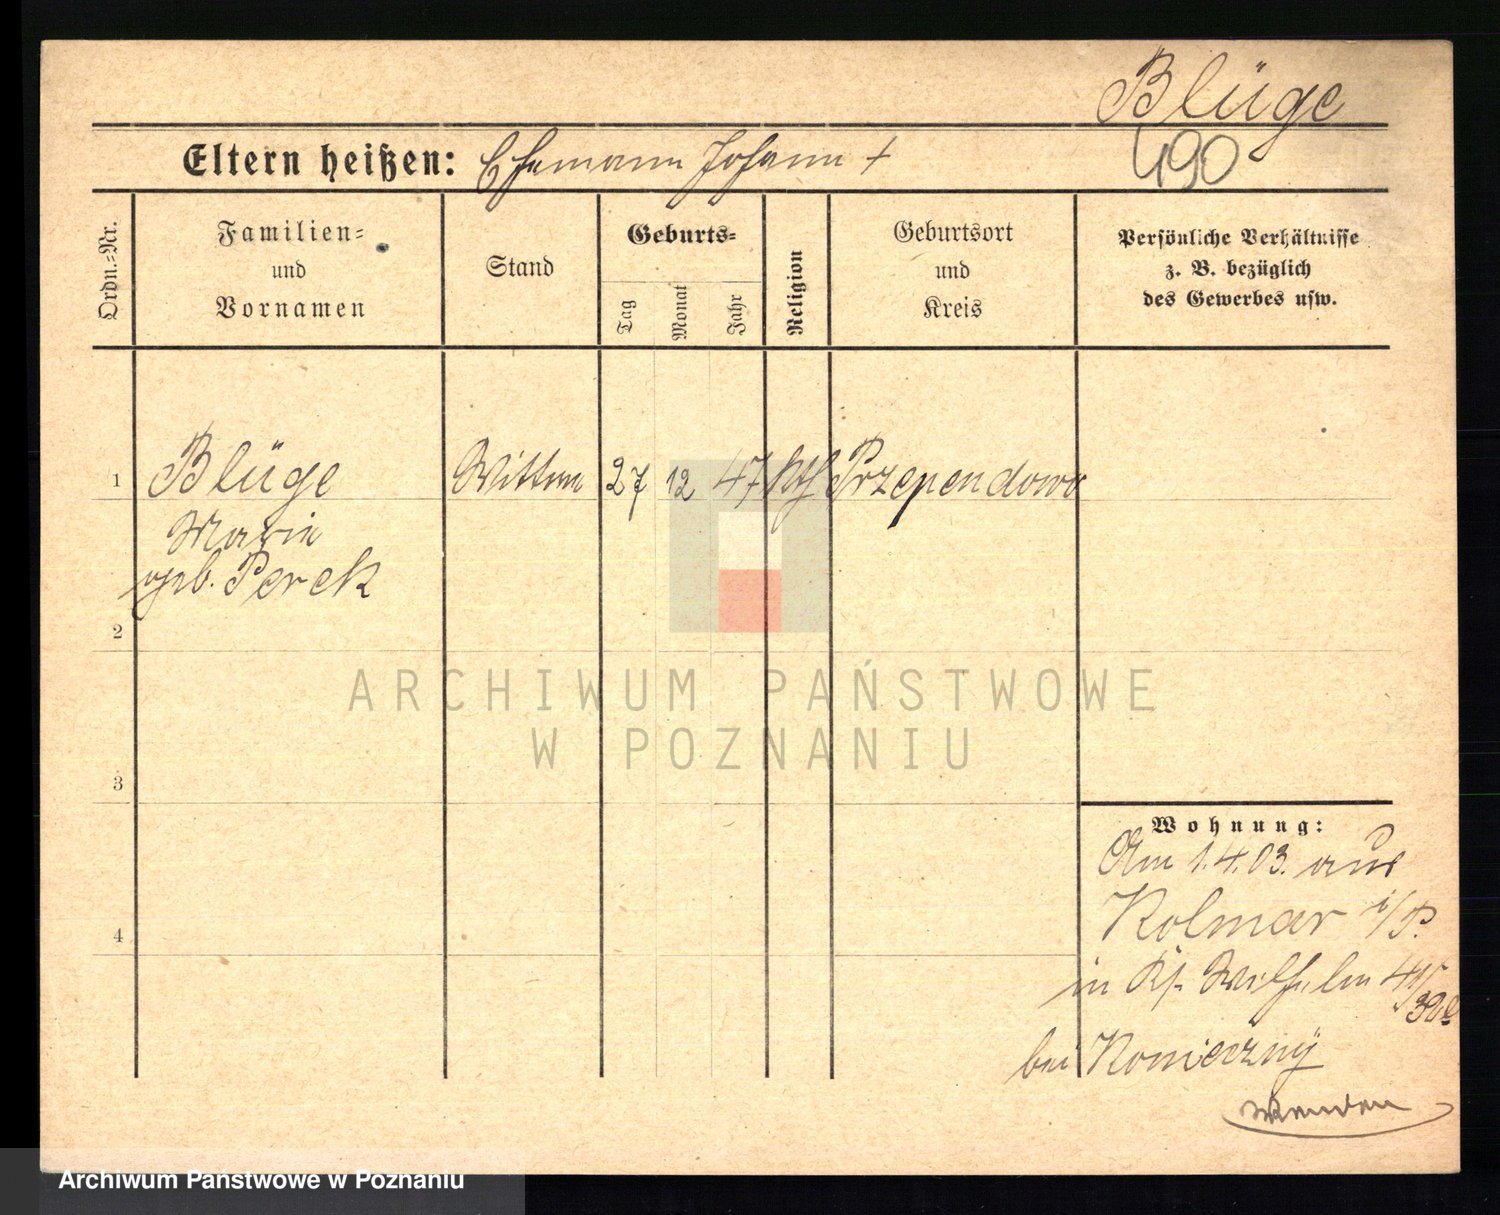 Blüge
490
Eltern heißen: Ehemann Johann †
Ordn.-Nr.
Familien-
und
Vornamen
Stand
Geburts-
Tag
Monat
Jahr
Religion
Geburtsort
und
Kreis
Persönliche Verhältnisse
z. B. bezüglich
des Gewerbes usw.
1 Blüge Wittwe 27 12 47 kth Przependowo
Marie
geb. Perek
2
3
4
Wohnung:
Am 1.4.03. aus
Kolmar i/P.
in Kj. Wilhelm
bei Konieczny
ARCHIWUM PAŃSTWOWE
W POZNANIU
Archiwum Państwowe w Poznaniu